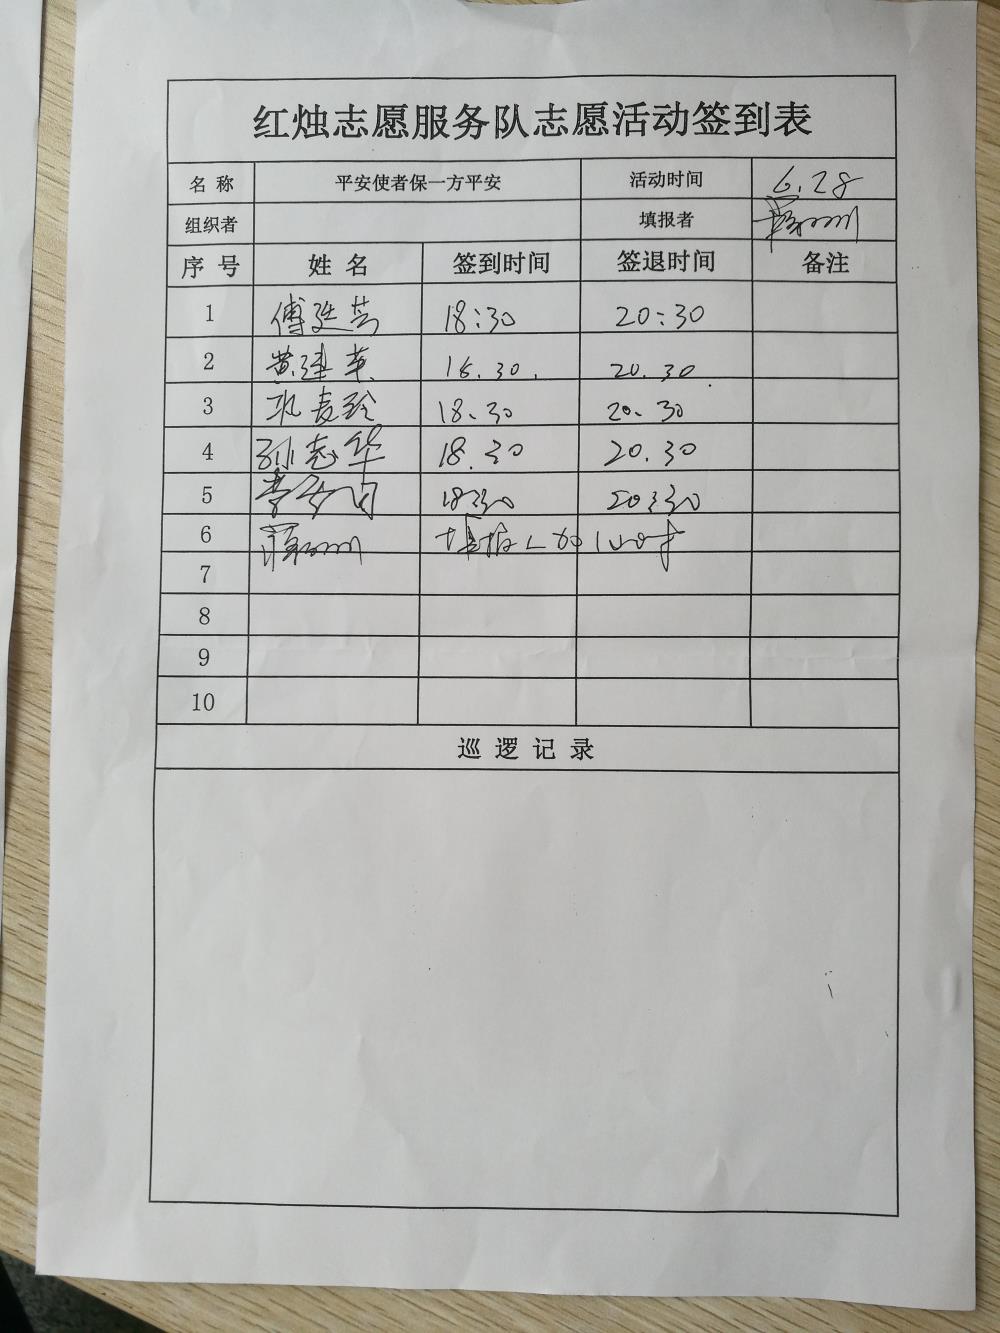 红烛志愿服务队志愿活动签到表
名 称 平安使者保一方平安 活动时间 6.28
组织者 填报者
序 号 姓 名 签到时间 签退时间 备注
1 傅延芸 18:30 20:30
2 黄建英 18.30. 20.30
3 巩麦玲 18.30 20.30
4 孙志华 18.30 20.30
5 18:30 20:30
6 填报人加1小时
7
8
9
10
巡 逻 记 录